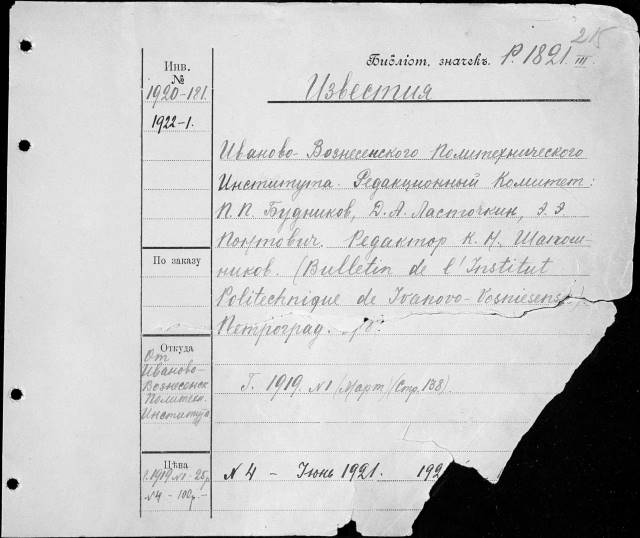 215
Библіот. значекъ. Р. 1821. III.
Известия
Инв. №
1920-181.
1922-1.
Иваново-Вознесенского Политехнического
Института. Редакционный Комитет:
П.П. Будников, Д.А. Ласточкин, Э.Э.
Понтович. Редактор К.Н. Шапош-
ников. (Bulletin de l'Institut
Politechnique de Ivanovo-Vosniesensk).
Петроград. 8°.
По заказу
Откуда
От
Иваново-
Вознесенск
Политехн.
Института
Г. 1919. N1 (Март) (Стр. 138).
Цѣна
г. 1919 N1 - 25р
N4 - 100р.-
N 4 - Июнь 1921. 192